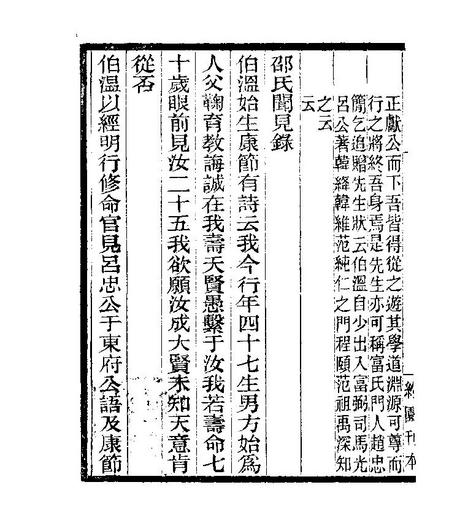 正獻公而下吾皆得從之遊其學道淵源可尊而
行之將終吾身焉是先生亦可稱富氏門人趙忠
簡乞追贈先生狀云伯溫自少出入富弼司馬光
呂公著韓絳韓維范純仁之門程頤范祖禹深知
之云
云
邵氏聞見錄
伯溫始生康節有詩云我今行年四十七生男方始爲
人父鞠育教誨誠在我壽夭賢愚繫于汝我若壽命七
十歲眼前見汝二十五我欲願汝成大賢未知天意肯
從否
伯溫以經明行修命官見呂忠公于東府公語及康節
約園刊本